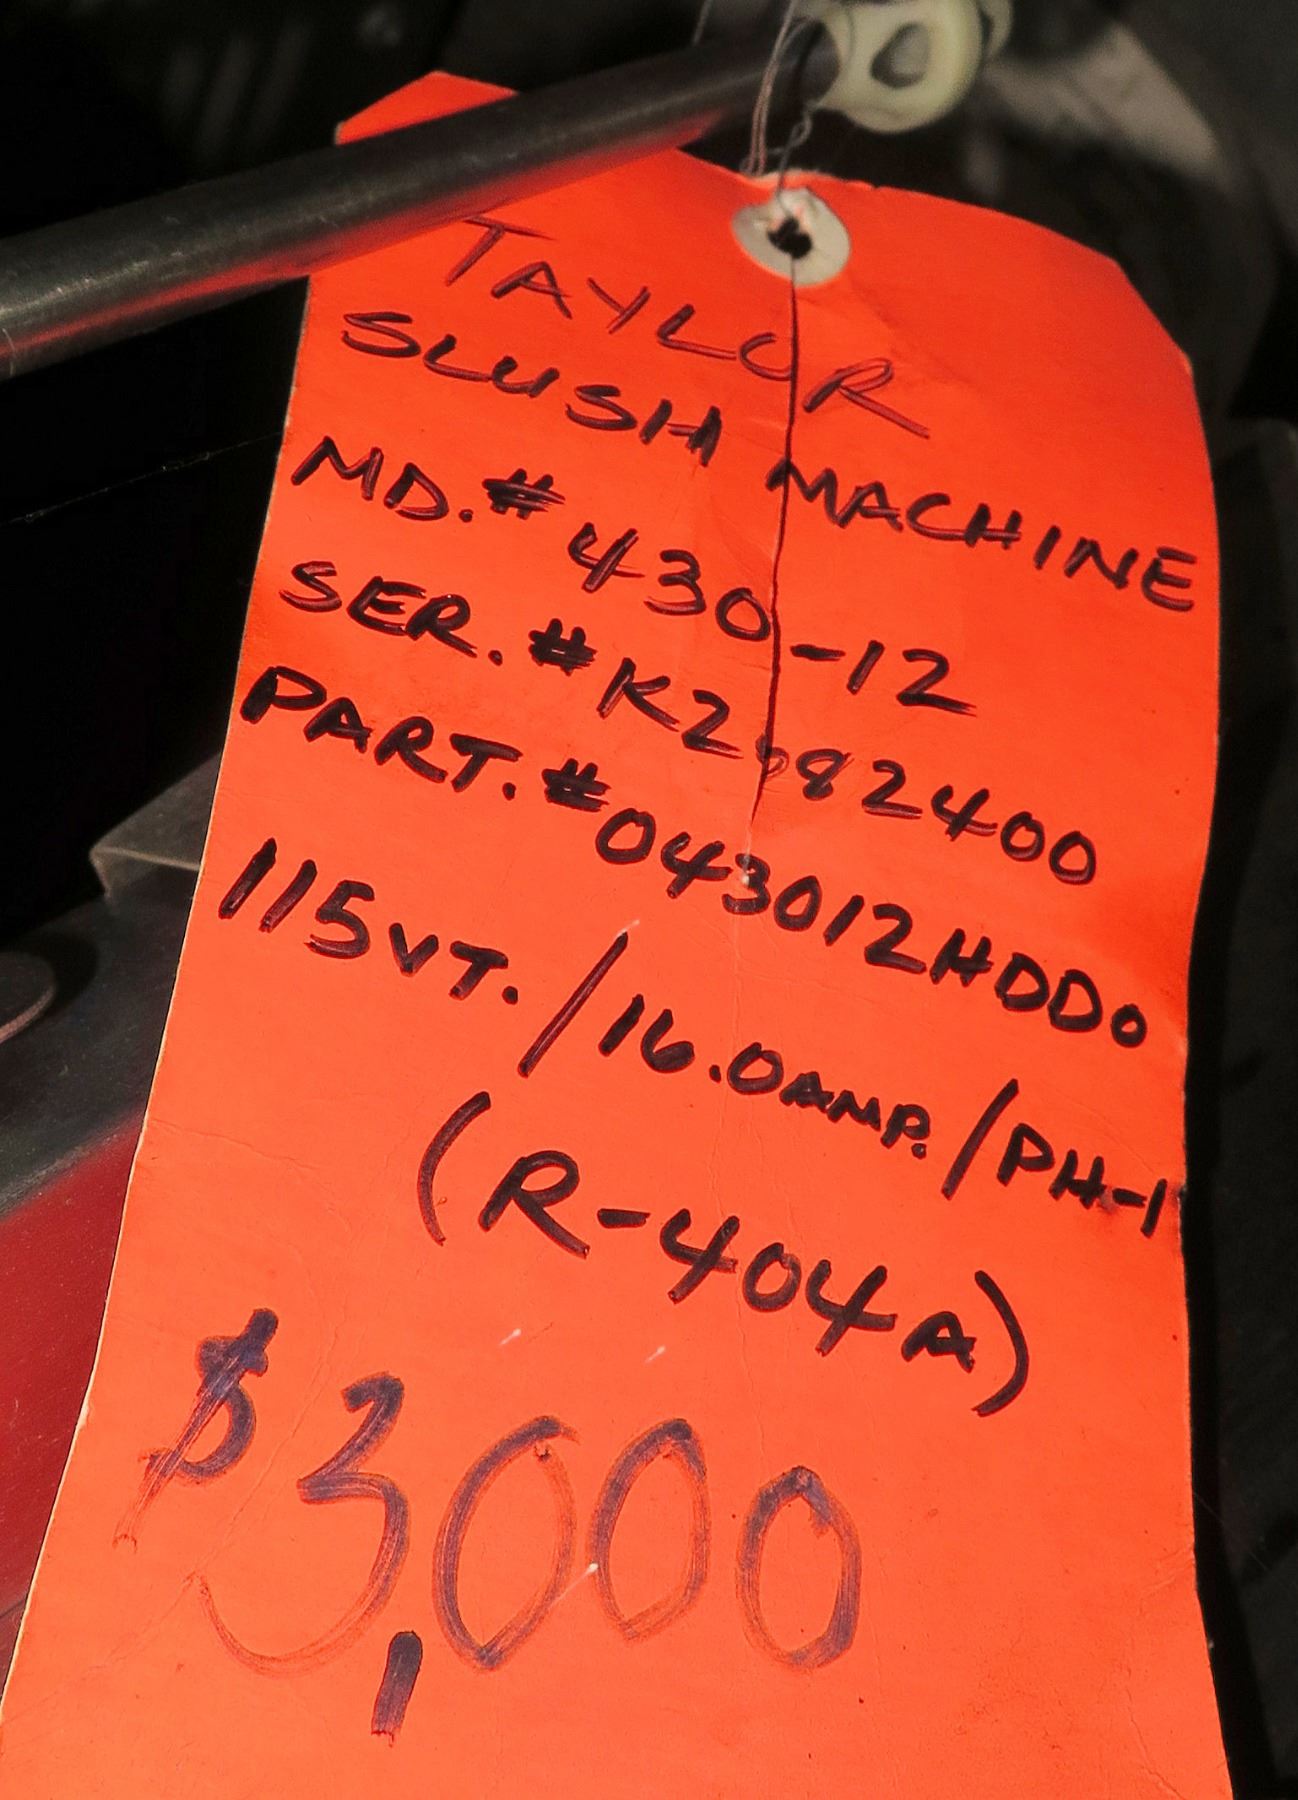 TAYLOR
SLUSH MACHINE
MD.# 430-12
SER.# K2082400
PART.# 043012HDD0
115VT./16.0AMP./PH-1
(R-404A)
$3,000